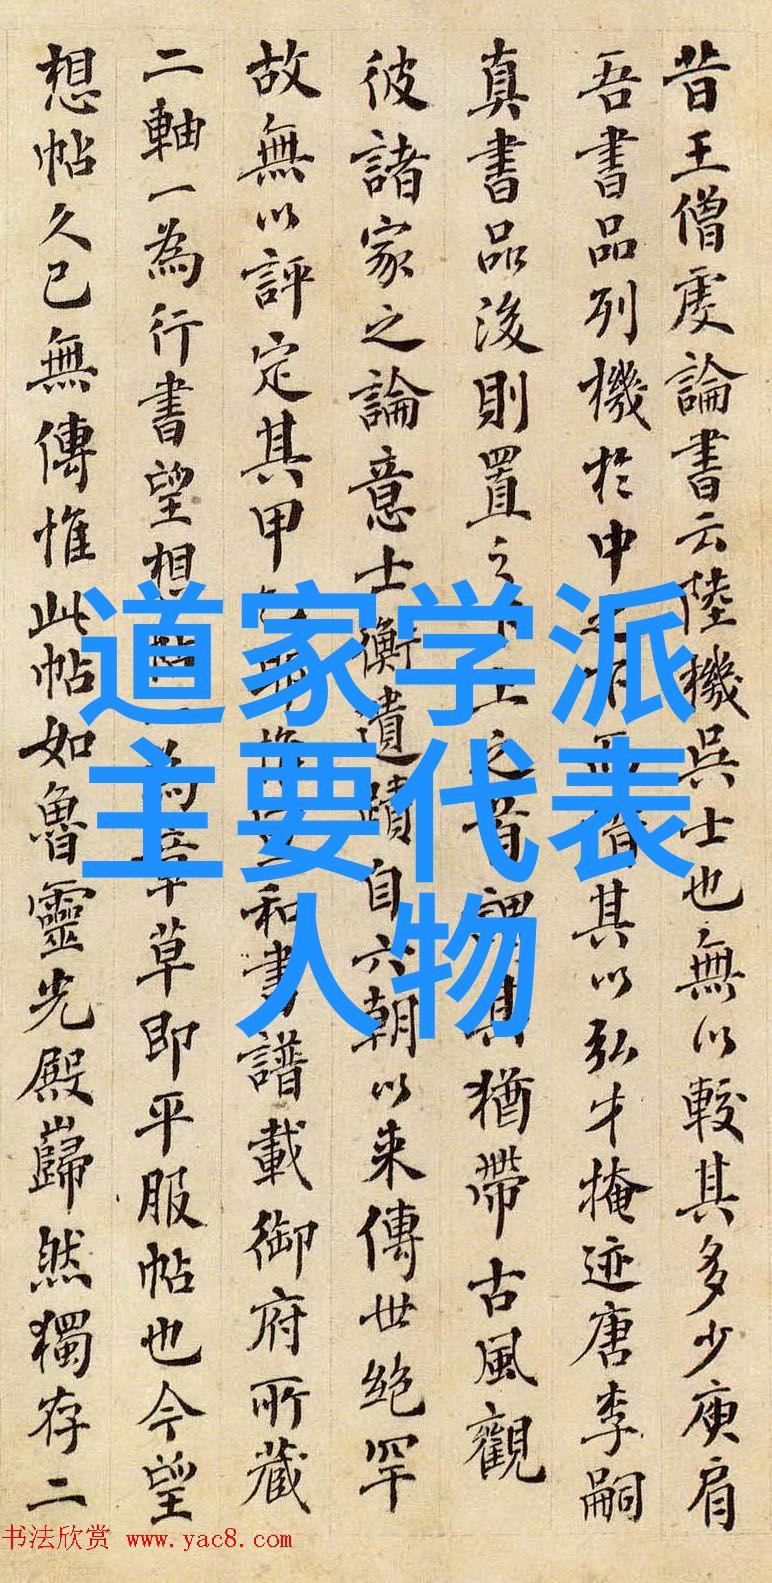 昔王僧虔論書云陸機吳士也無以較其多少庾肩
吾書品列機於中之而惜其以弘才掩迹唐李嗣
真書品後則置之下上之首謂其猶帶古風觀
彼諸家之論意士衡遺蹟自六朝以来傳世絶罕
故無以評定其甲和書譜載御府所藏
二軸一為行書望想帖為章草即平服帖也今望
想帖久已無傳惟此帖如魯靈光殿巋然獨存二
道家学派
主要代表
人物
书法欣赏 www.yac8.com